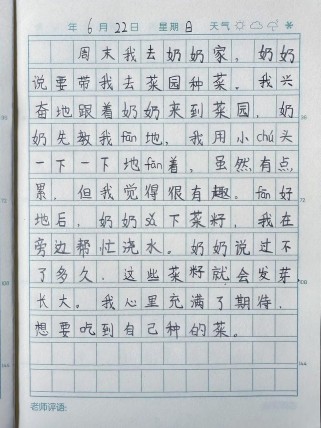 年 6月 22日 星期日 天气
周末我去奶奶家，奶奶
说要带我去菜园种菜。我兴
奋地跟着奶奶来到菜园，奶
奶先教我fān地，我用小chú头
一下一下地fān着，虽然有点
累，但我觉得很有趣。fān好
地后，奶奶下菜籽，我在
旁边帮忙浇水。奶奶说过不
了多久，这些菜籽就会发芽
长大。我心里充满了期待，
想要吃到自己种的菜。
老师评语: